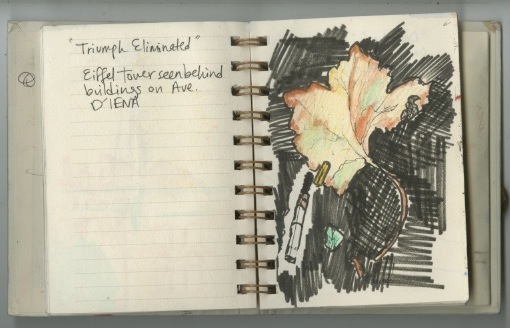 "Triumph Eliminated"
Eiffel tower seen behind
buildings on Ave.
D'IENA